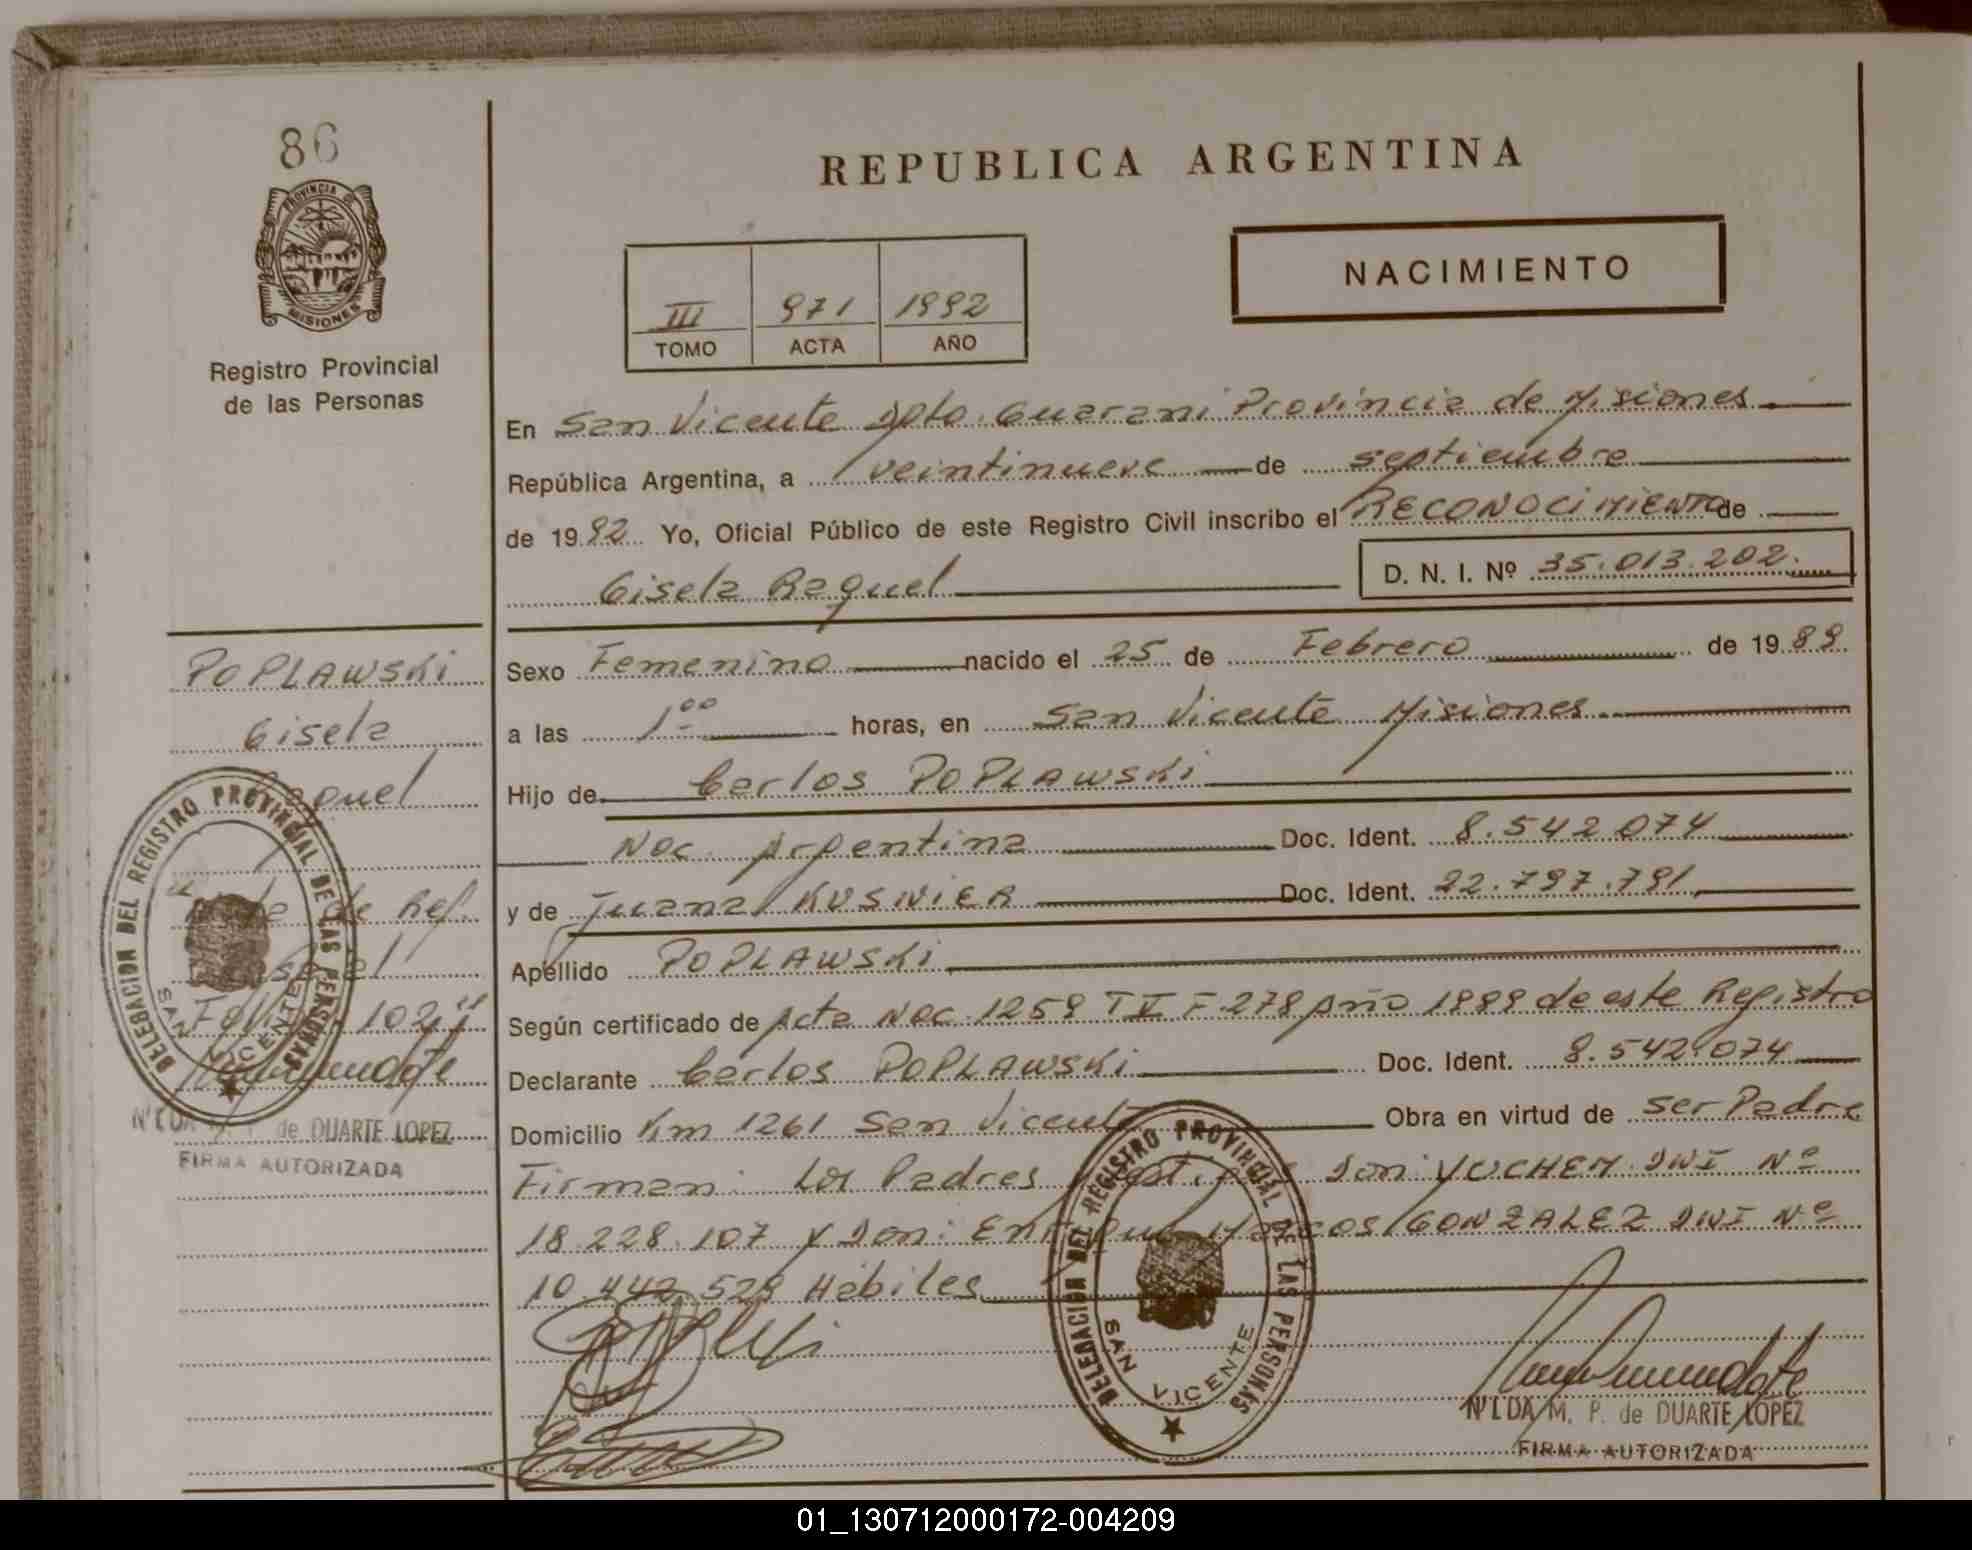 86
PROVINCIA DE
MISIONES
Registro Provincial
de las Personas
REPUBLICA ARGENTINA
NACIMIENTO
III 971 1992
TOMO ACTA AÑO
En San Vicente Dpto. Guarani Provincia de Misiones
República Argentina, a veintinueve de septiembre
de 1992 Yo, Oficial Público de este Registro Civil inscribo el RECONOCIMIENTO de
Gisela Raquel D. N. I. Nº 35.013.202.
Sexo Femenino nacido el 25 de Febrero de 1989
a las 1.00 horas, en San Vicente Misiones
Hijo de Carlos POPLAWSKI
Nac. Argentina Doc. Ident. 8.542.074
y de Juana KUSNIER Doc. Ident. 22.797.791
Apellido POPLAWSKI
Según certificado de Acta Nac. 1259 T II F. 278 Año 1989 de este Registro
Declarante Carlos POPLAWSKI Doc. Ident. 8.542.074
Domicilio Km 1261 San Vicente Obra en virtud de ser Padre
Firman: Los Padres Don: YUCHEM DNI Nº
18.228.107 y Don: Enrique Marcos GONZALEZ DNI Nº
10.442.529 Hábiles
POPLAWSKI
Gisela
Raquel
de Ref.
Folio 102"
DELEGACION DEL REGISTRO PROVINCIAL DE LAS PERSONAS
SAN VICENTE
de DUARTE LOPEZ
FIRMA AUTORIZADA
DELEGACION DEL REGISTRO PROVINCIAL DE LAS PERSONAS
SAN VICENTE
NILDA M. P. de DUARTE LOPEZ
FIRMA AUTORIZADA
01_130712000172-004209